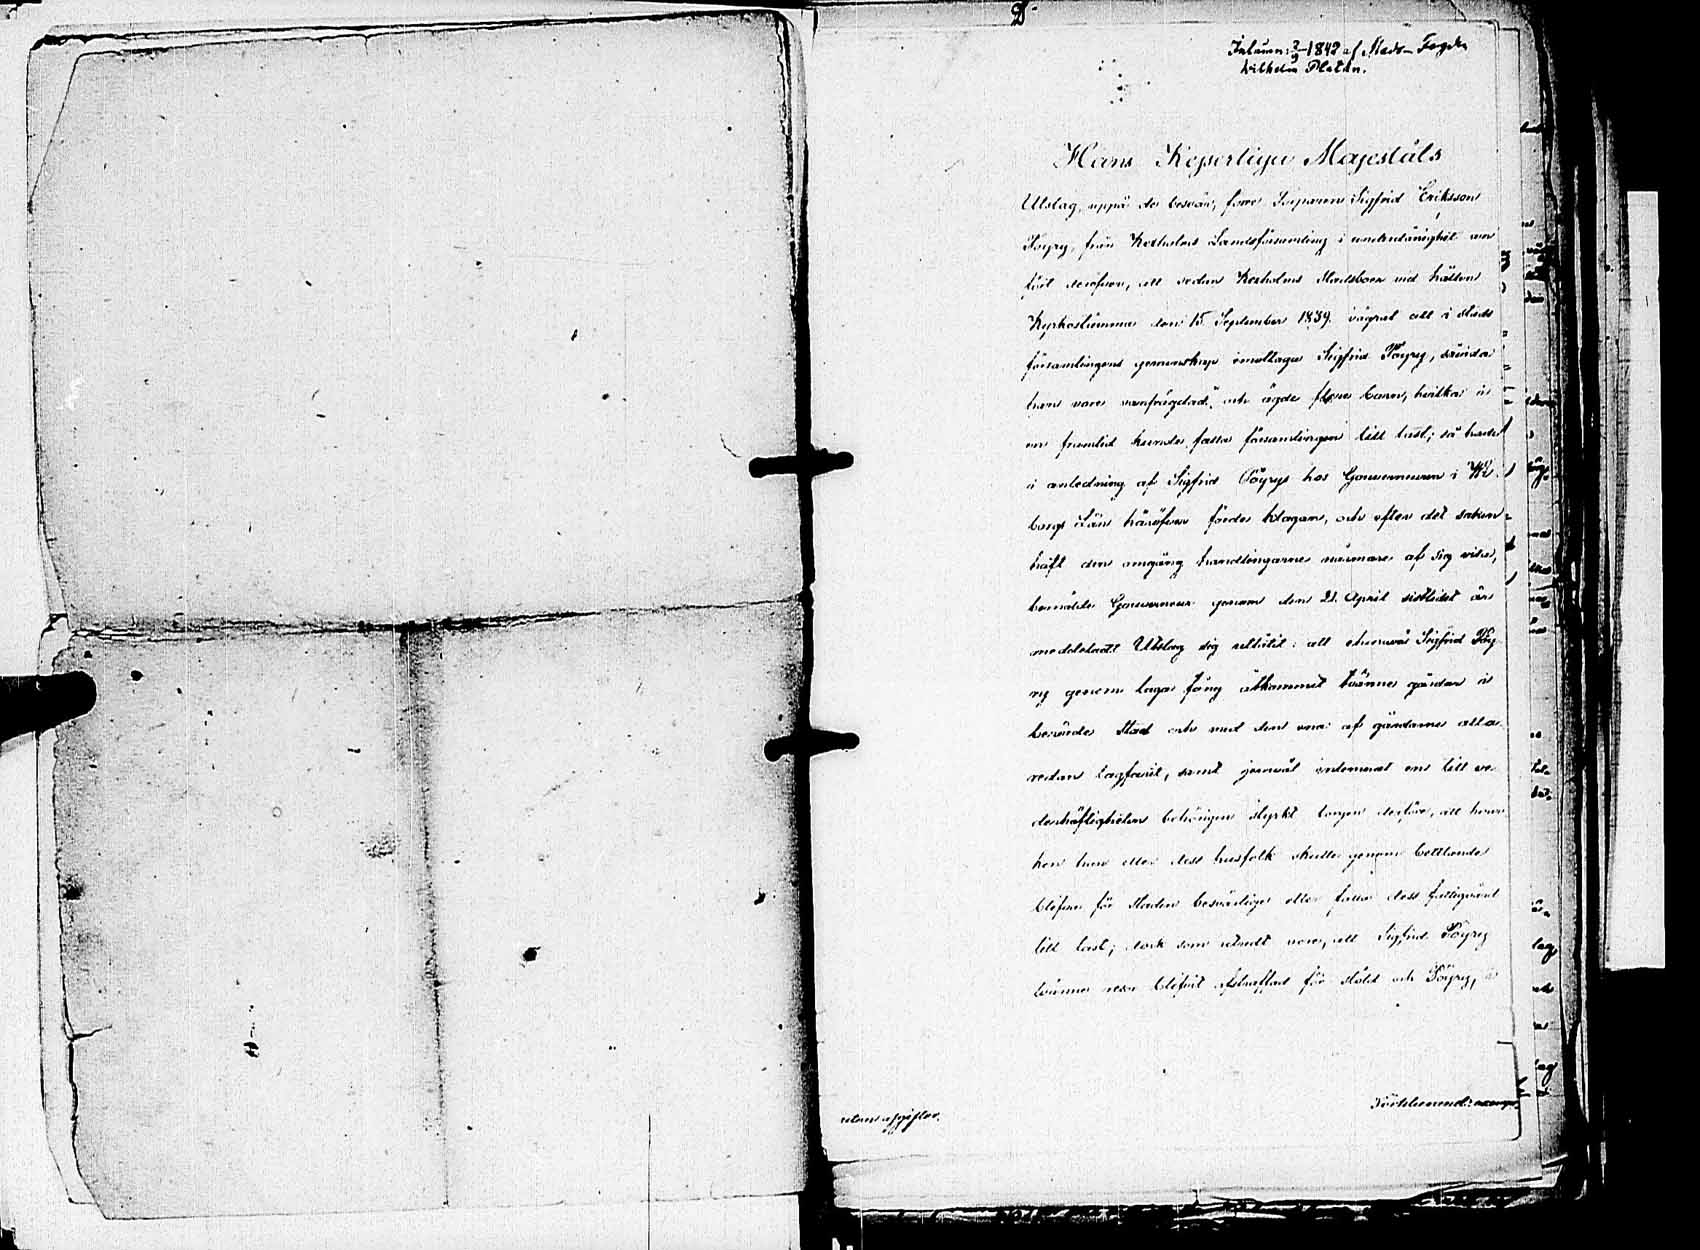 D
Inlemn: 2/9 1842 af Stads Fogden
Wilhelm Platan.
Hans Kejserliga Majestäts
Utslag, uppå de besvär, som Torparen Sigfrid Eriksson
Pöyry, från Kexholms Landsförsamling i underdånighet an
fört deröfver, att sedan Kexholms Stadsboer vid hållen
Kyrkostämma den 15 September 1839. vägrat att i stads
församlingens gemenskap emottaga Sigfrid Pöyry, såsom
hans vore vanfrägdad, och ägde flere barn, hvilka i
en framtid kunde falla församlingen till last; så hade
i anledning af Sigfrid Pöyrys hos Gouverneuren i Wi
borgs Län häröfver förde klagan, och efter det saken
haft den omgång handlingarne närmare af sig visa,
bemälde Gouverneur genom den 21. April sistlidet år
meddeladt Utslag sig utlåtit: att ehuruväl Sigfrid Pöy
ry genom laga fång åtkommit tvänne gårdar i
berörde Stad och med den ena af gårdarne alla
redan lagfarit, samt jemväl inlemnat en till ve
derhäftigheten behörigen styrkt borgen derföre, att hvar
ken han eller dess husfolk skulle genom bettlande
blifva för staden besvärlige eller falla dess fattigvård
till last; dock som utredt vore, att Sigfrid Pöyry
tvänne resor blifvit afstraffad för stöld och Pöyry, i
utan afgifter.